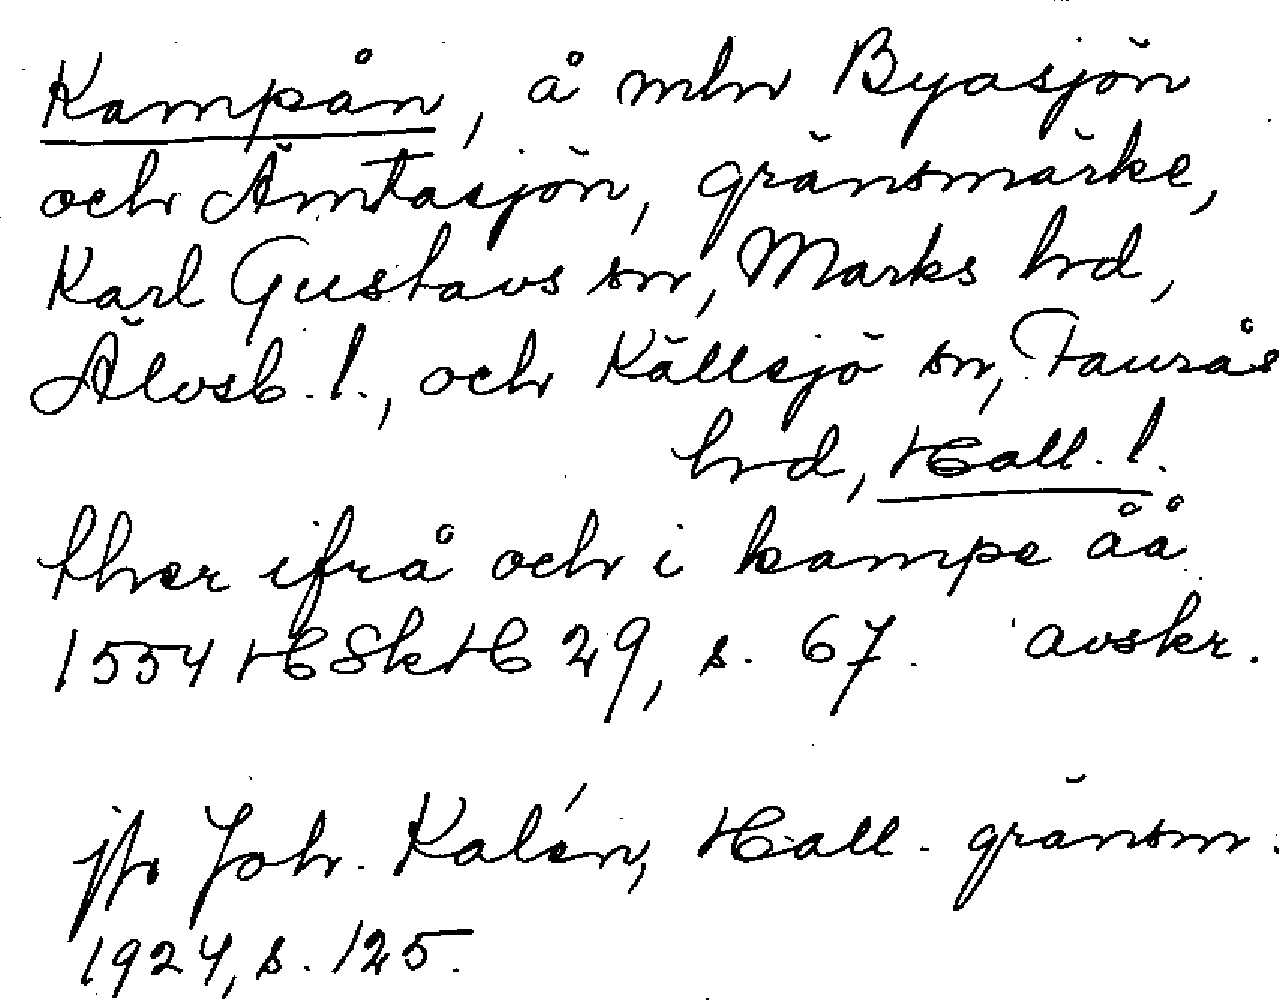 Kampån, å mln Byasjön
och Ämtasjön, gränsmärke,
Karl Gustavs sn, Marks hd,
Älvsb. l., och Källsjö sn, Faurås
hd, Hall. l.
ther ifrå och i kampe åå
1554 HSkH 29, s. 67. avskr.
jfr Joh. Kalén, Hall. gränsm.
1924, s. 125.